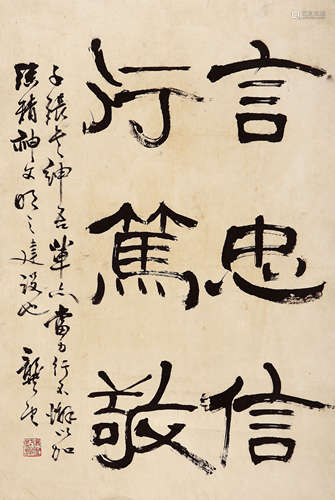 言忠信
行篤敬
子張書紳吾輩亦當力行不懈以加
強精神文明之建設也